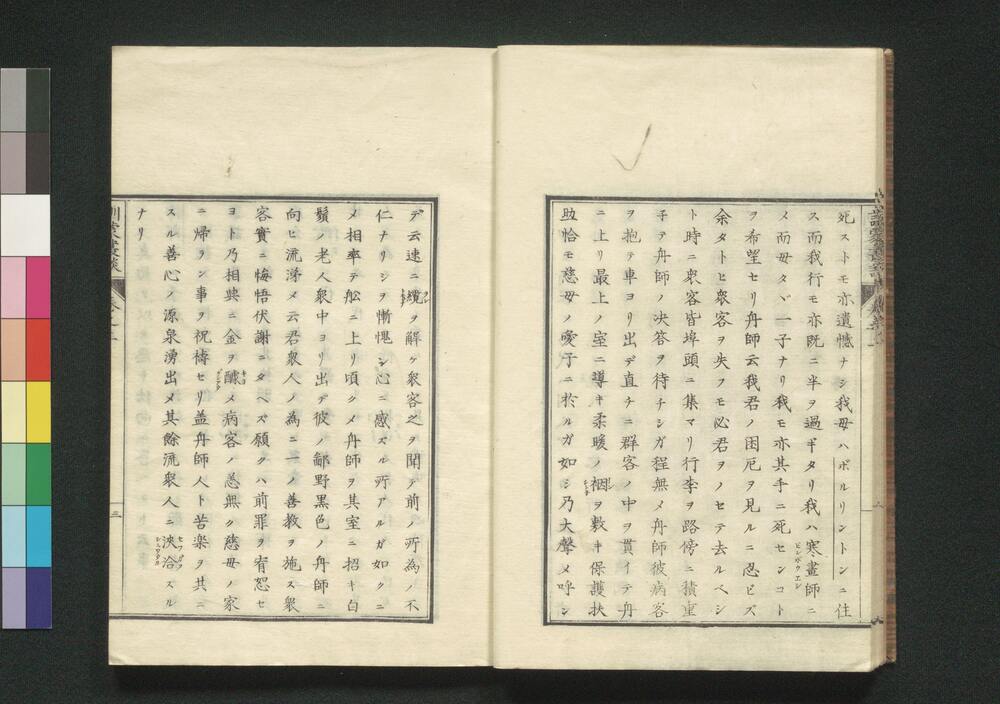 死ストモ亦遺憾ナシ我母ハボルリントンニ住
ス而我行モ亦既ニ半ヲ過ギタリ我ハ寒畫師ニ
メ而母タヾ一子ナリ我モ亦其手ニ死センコト
ヲ希望セリ舟師云我君ノ困厄ヲ見ルニ忍ビズ
余タトヒ衆客ヲ失フモ必君ヲノセテ去ルベシ
ト時ニ衆客皆埠頭ニ集マリ行李ヲ路傍ニ積重
子テ舟師ノ决答ヲ待チシガ程無メ舟師彼病客
ヲ抱テ車ヨリ出デ直チニ群客ノ中ヲ貫イテ舟
ニ上リ最上ノ室ニ導キ柔暖ノ裀ヲ敷キ保護扶
助恰モ慈母ノ愛子ニ於ルガ如シ乃大聲メ呼ン
デ云速ニ纜ヲ解ケ衆客之ヲ聞テ前ノ所為ノ不
仁ナリシヲ慚愧シ心ニ感ズル所アルガ如クニ
メ相率テ舩ニ上リ頃クメ舟師ヲ其室ニ招キ白
鬚ノ老人衆中ヨリ出デ彼ノ鄙野黒色ノ舟師ニ
向ヒ流涕メ云君衆人ノ為ニ一ノ善教ヲ施ス衆
客實ニ悔悟伏謝ニタヘズ願クハ前罪ヲ宥恕セ
ヨト乃相與ニ金ヲ醵メ病客ノ恙無ク慈母ノ家
ニ帰ラン事ヲ祝禱セリ盖舟師人ト苦楽ヲ共ニ
スル善心ノ源泉湧出メ其餘流衆人ニ浹洽スル
ナリ
三